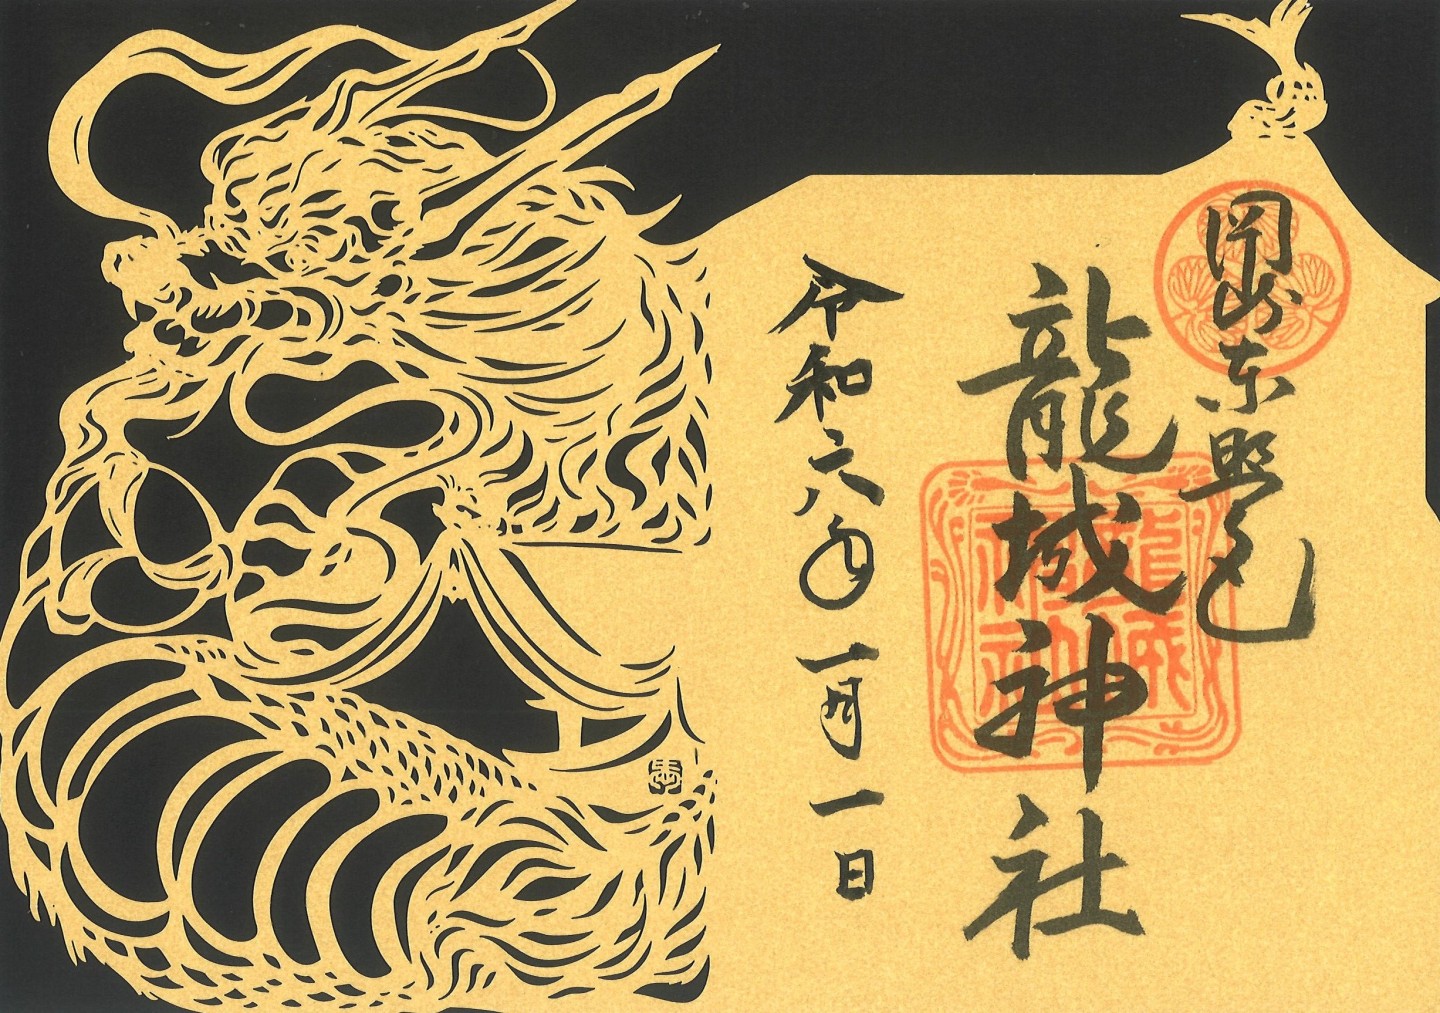 岡崎東照宮
龍城神社
龍城
神社
令和六年一月一日